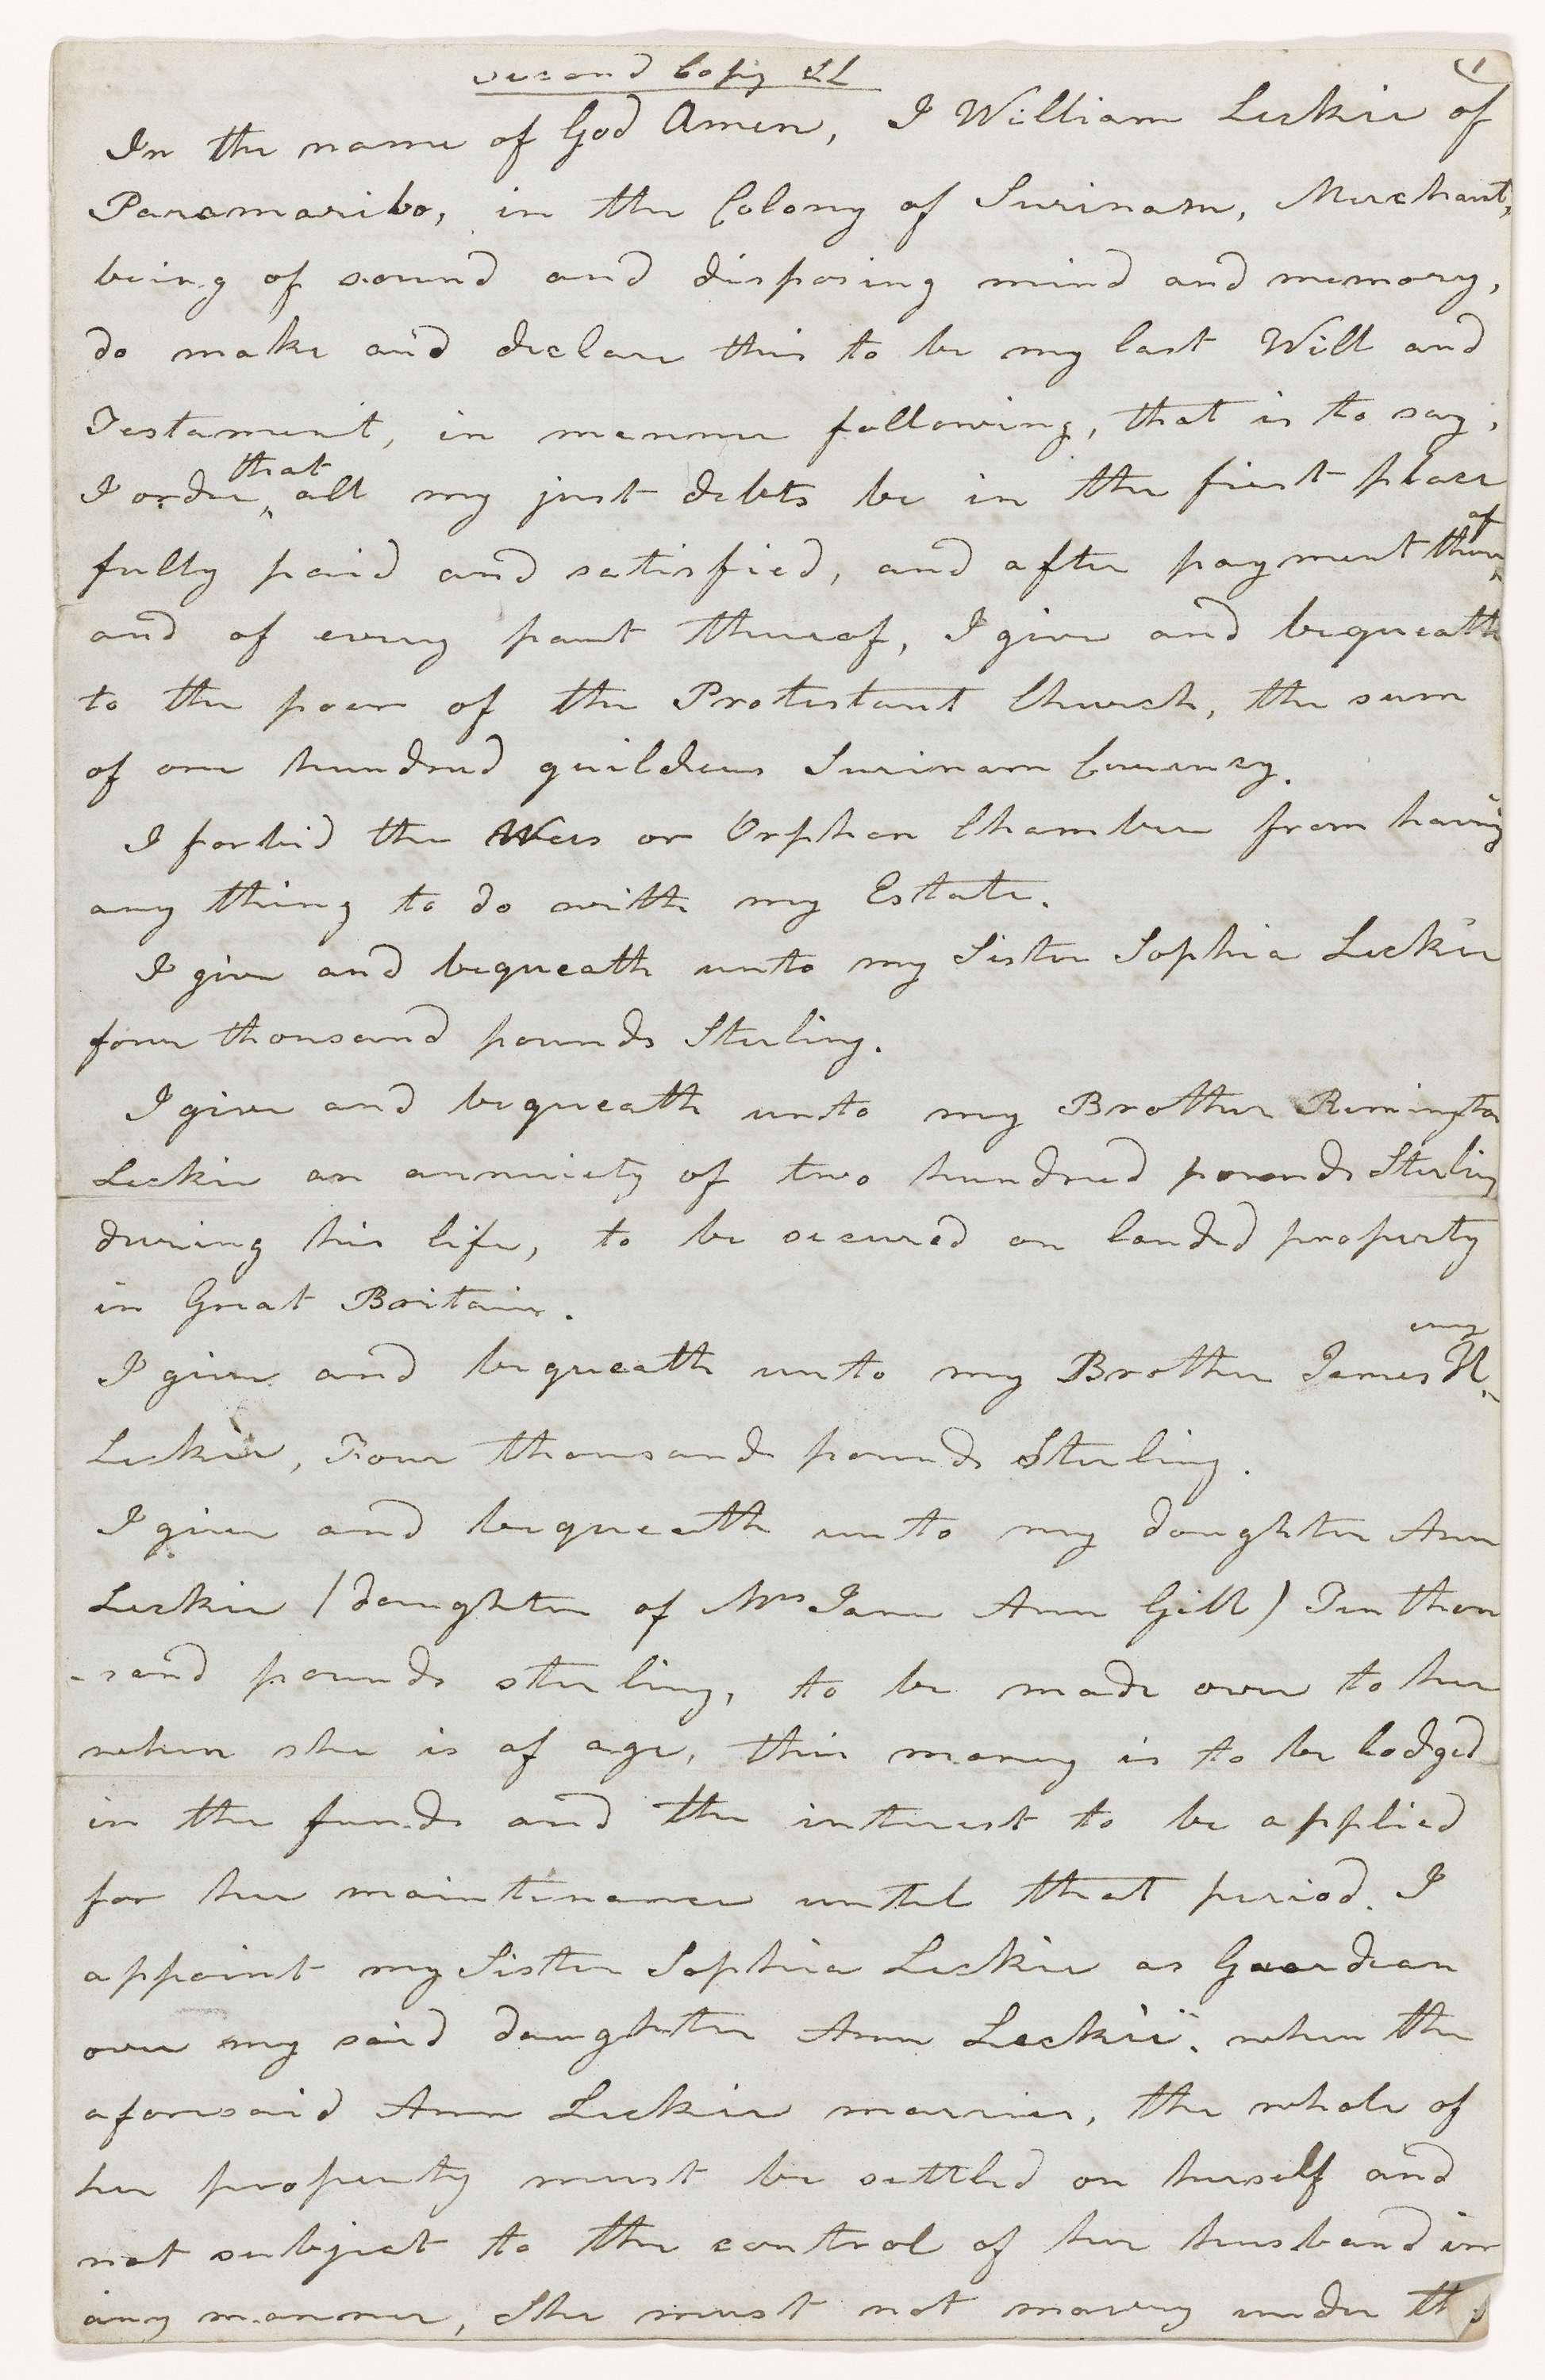 second Copy
In the name of God Amen, I William Leckie of
Paramaribo, in the Colony of Surinam, Merchant,
being of sound and disposing mind and memory,
do make and declare this to be my last Will and
Testament, in manner following, that is to say,
I order that all my just debts be in the first place
fully paid and satisfied, and after payment thereof
and of every part thereof, I give and bequeath
to the poor of the Protestant Church, the sum
of one hundred guilders Surinam Currency.
I forbid the Wees or Orphan Chamber from having
any thing to do with my Estate.
I give and bequeath unto my Sister Sophia Leckie
four thousand pounds Sterling.
I give and bequeath unto my Brother Remington
Leckie an annuiety of two hundred pounds Sterling
during his life, to be secured on landed property
in Great Britain.
I give and bequeath unto my Brother James
Leckie, Four thousand pounds Sterling.
I give and bequeath unto my daughter Ann
Leckie (daughter of Mrs Jane Ann Gill) Ten thou
-sand pounds sterling, to be made over to her
when she is of age, this money is to be lodged
in the funds and the interest to be applied
for her maintenance until that period. I
appoint my Sister Sophia Leckie as Guardian
over my said daughter Ann Leckie. when the
aforesaid Ann Leckie marries, the whole of
her property must be settled on herself and
not subject to the control of her husband in
any manner, She must not marry under